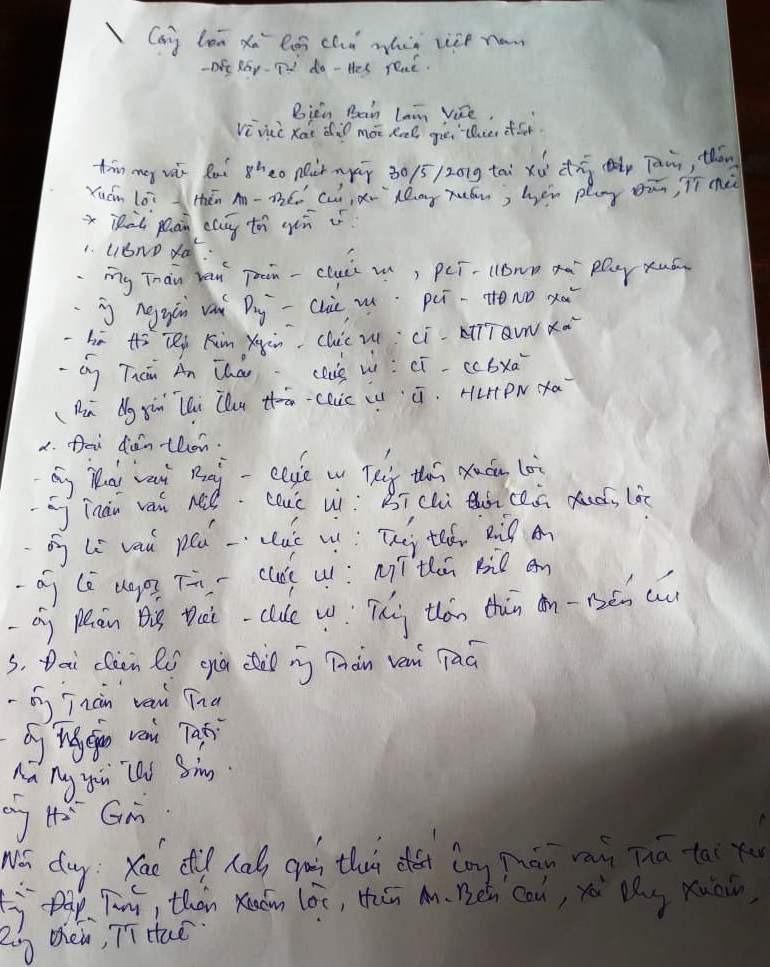 Cộng hòa xã hội chủ nghĩa việt nam
- Độc lập - Tự do - Hạnh phúc.
Biên Bản Làm Việc.
Về việc xác định mốc ranh giới thửa đất.
Hôm nay vào lúc 8h20 phút ngày 30/5/2019 tại xứ đồng Đập Tràm, thôn
Xuân Lộc - Hiền An - Bến Củi, xã Phong Xuân, huyện phong Điền, TT Huế
* Thành phần chúng tôi gồm
1. UBND xã:
- ông Trần văn - chức vụ, PCT - UBND xã Phong Xuân
- ông Nguyễn văn - Chức vụ: PCT - HĐND xã
- bà Hồ Thị Kim Xuyến - chức vụ: CT - MTTQVN xã
- ông Trần An - chức vụ: CT - CCB xã
Bà Nguyễn Thị Thu Hoà - chức vụ: CT. HLHPN xã
2. Đại diện thôn.
- ông Thái văn Bảy - chức vụ Trưởng thôn Xuân lộc
- ông Trần văn - chức vụ: BT chi thôn Xuân Lộc
- ông Lê văn phú - chức vụ: Trưởng thôn Bình An
- ông Lê Ngọc - chức vụ: MT thôn Bình An
- ông Phan Đình - chức vụ: Trưởng thôn Hiền An - Bến Củi
3. Đại diện hộ gia đình ông Trần văn Trà
- ông Trần văn Tra
- ông văn
Bà Nguyễn Thị
ông Hồ Gìn.
Nội dung: Xác định ranh giới thửa đất ông Trần văn Trà tại xứ
đồng Đập Tràm, thôn Xuân Lộc, Hiền An - Bến Củi, xã Phong Xuân,
Phong Điền, TT Huế.